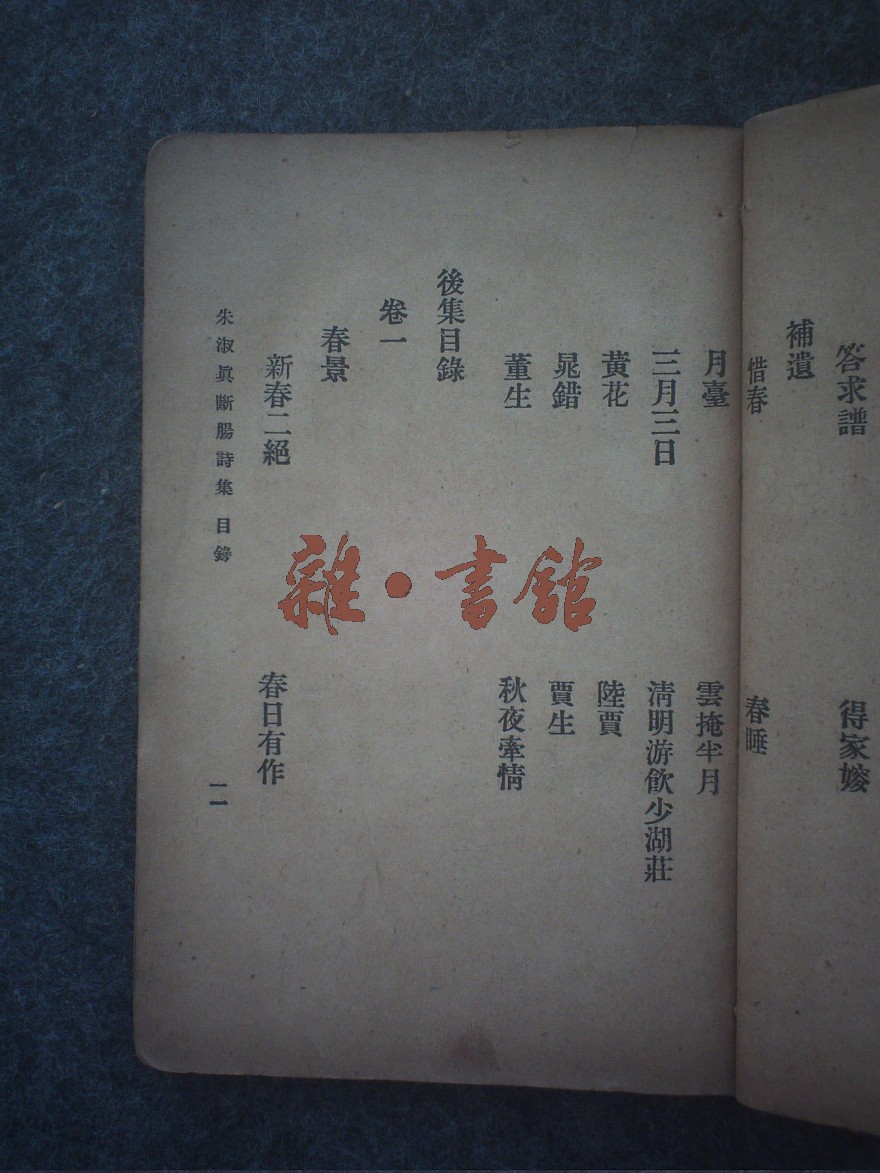 答求譜　得家嫂
補遺
惜春　春睡
月臺　雲掩半月
三月三日　清明游飲少湖莊
黃花　陸賈
晁錯　賈生
董生　秋夜牽情
後集目錄
卷一
春景
新春二絕　春日有作
朱淑眞斷腸詩集　目錄　一一
雜・書館